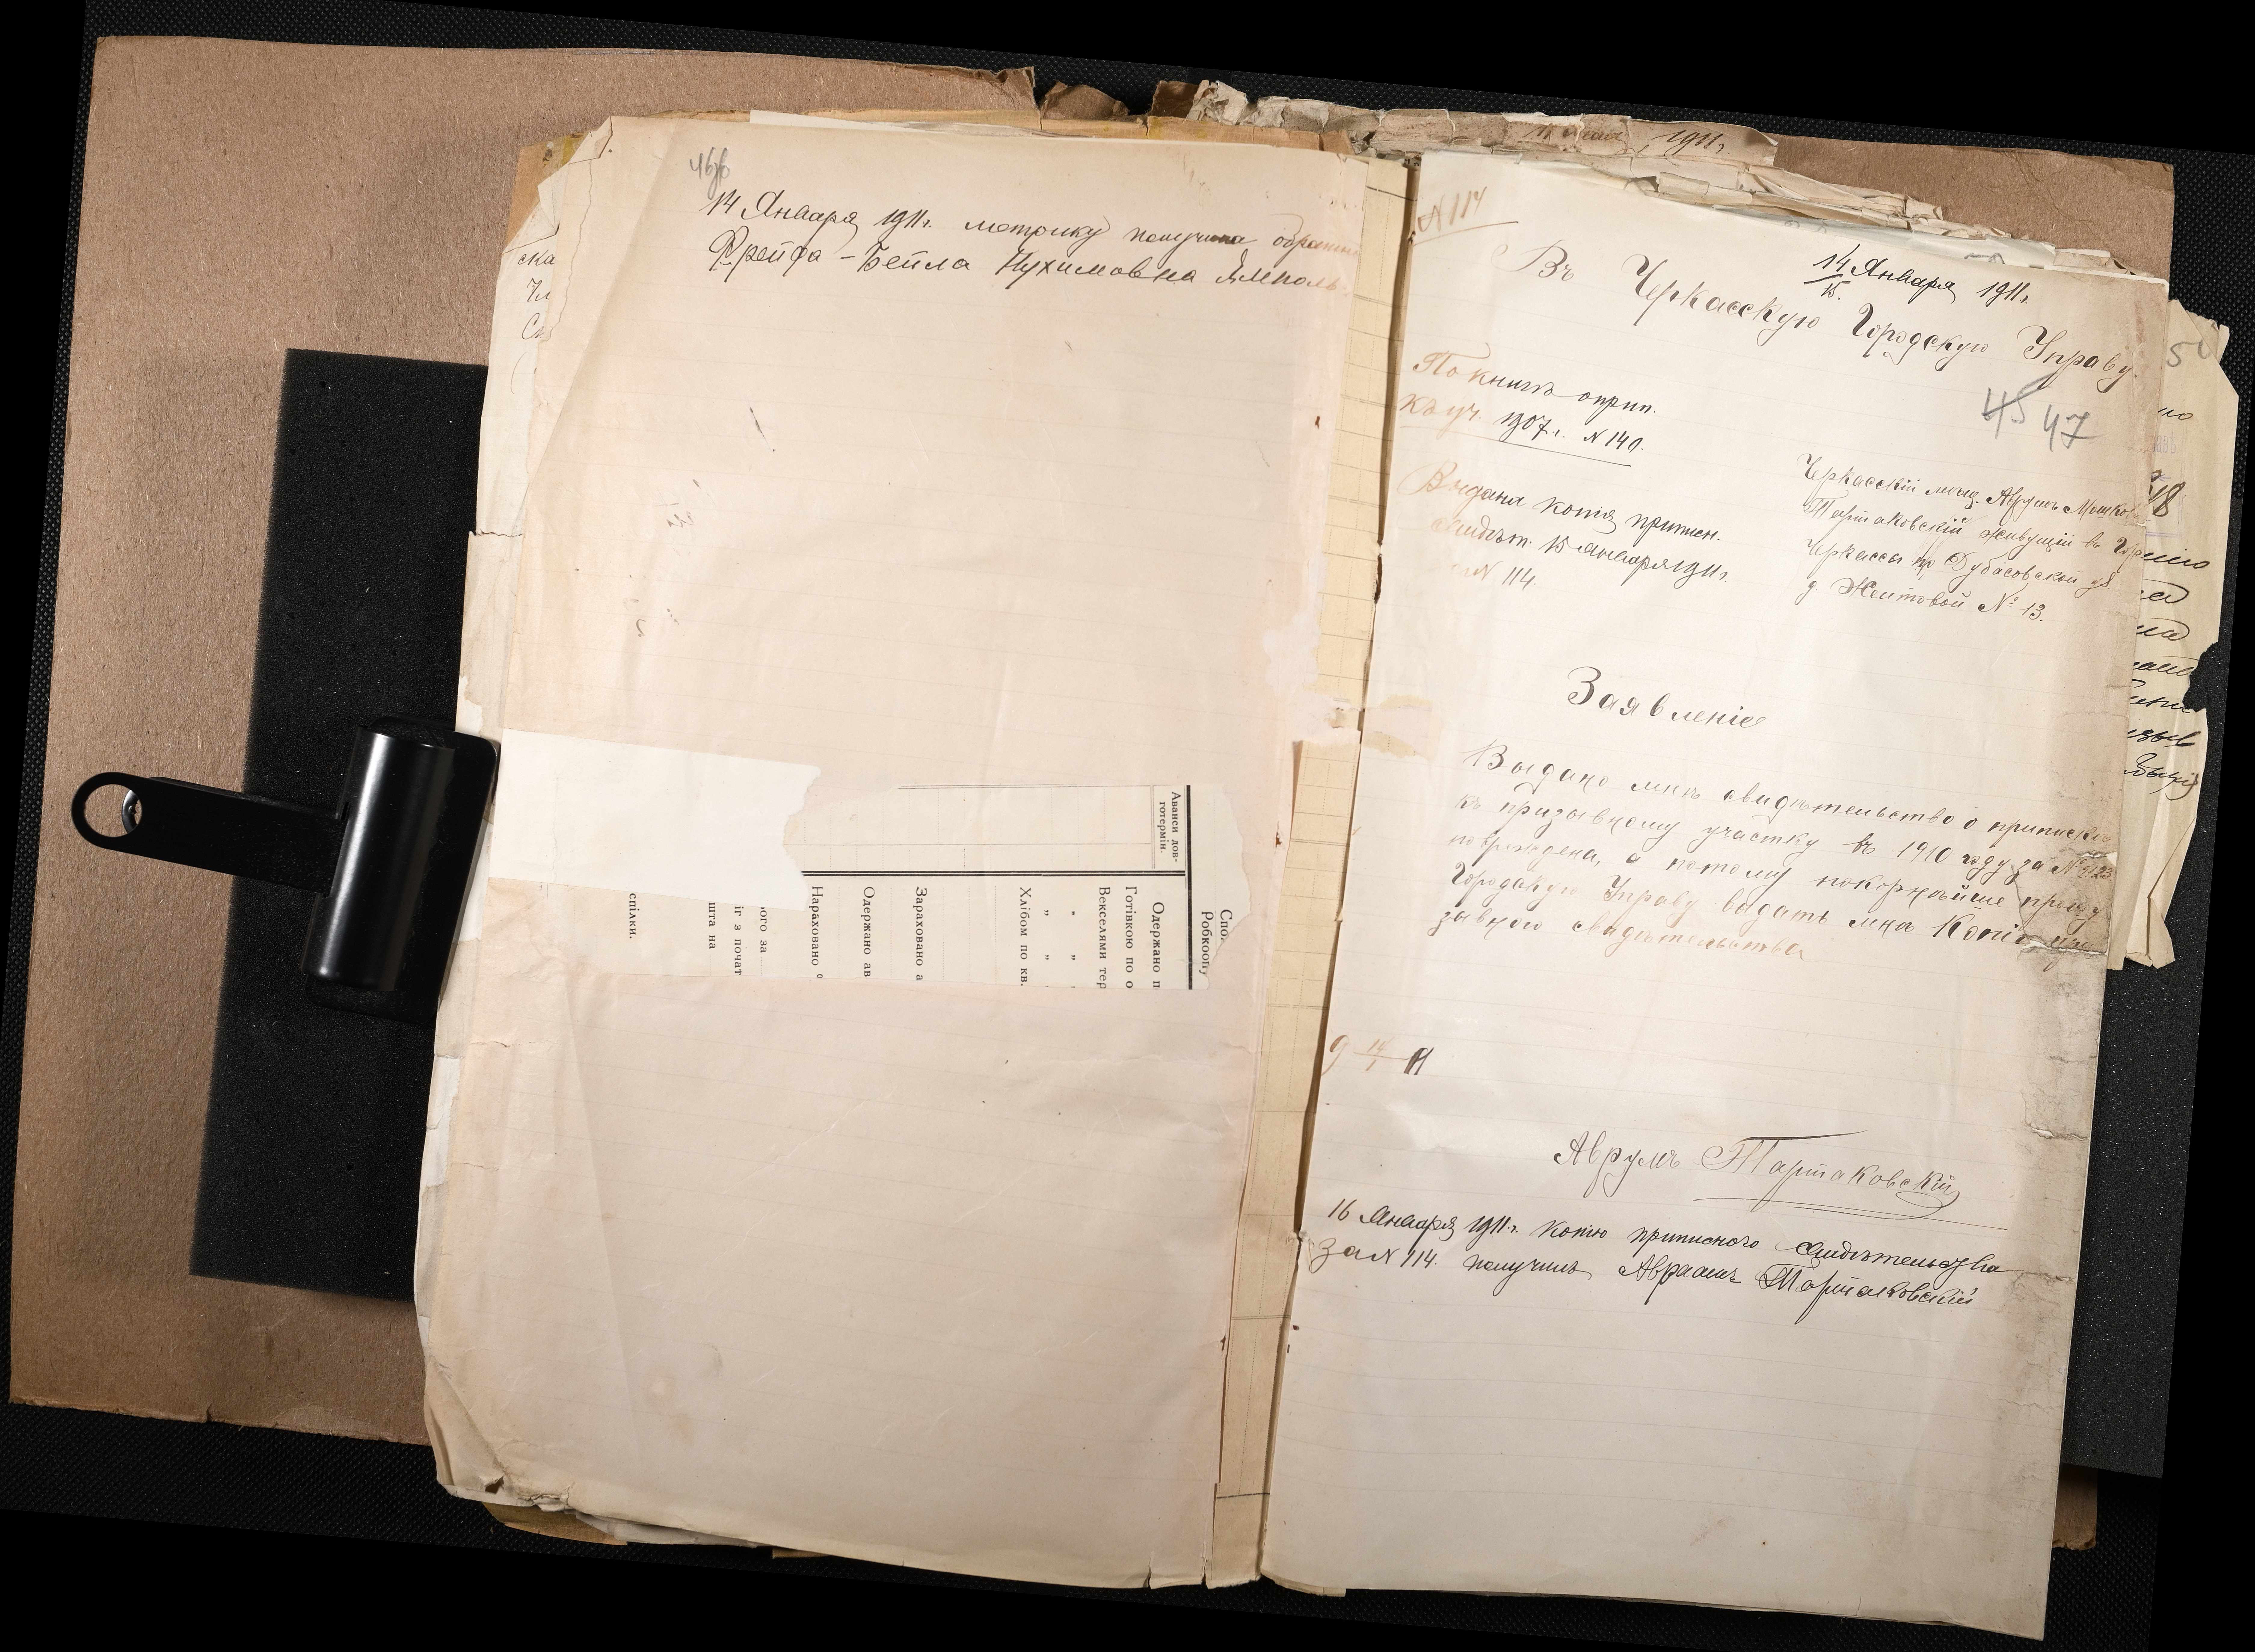 46об
14 Января 1911 г. метрику получила обратно
Фрейда-Бейла Нухимовна Ямполь
ска
Аванси дов-
готермін.
Спо
Робкоопу
Одержано п
Готівкою по о
Векселями тер
" " "
Хлібом по кв.
Зараховано а
Одержано ав
Нараховано
ого за
іг з почат
шта на
спілки.
1911 г.
N 114
14 Января 1911 г.
15.
Въ Черкасскую Городскую Управу.
45 47
По книгѣ оприп.
къ уч. 1907 г. N 140.
Выдана копія приписн.
свидѣт. 15 Января 1911 г.
за N 114.
Черкасскій мѣщ. Аврумъ Мошков
Тартаковскій живущій въ Городѣ
Черкассы по Дубасовской ул
д. Желтовой № 13.
Заявленіе
Выдано мнѣ свидѣтельство о припискѣ
къ призывному участку въ 1910 году за №
повреждена, а потому покорнѣйше прошу
Городскую Управу выдать мнѣ Копію при
зывного свидѣтельства
14
1
11
Аврумъ Тартаковскій
16 Января 1911 г. копію приписного свидѣтельства
за N 114. получилъ Авраамъ Тартаковскій